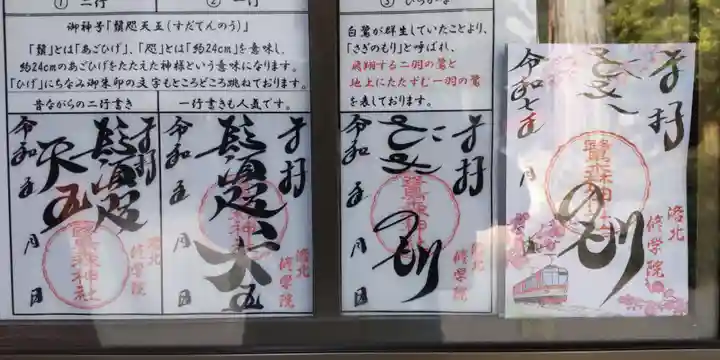 ① 二行
② 一行
③ ひらがな
御神号「鬚咫天王(すだてんのう)」
「鬚」とは「あごひげ」、「咫」とは「約24cm」を意味し、
約24cmのあごひげをたたえた神様という意味になります。
「ひげ」にちなみ御朱印の文字もところどころ跳ねております。
昔ながらの二行書き
一行書きも人気です。
白鷺が群生していたことより、
「さぎのもり」と呼ばれ、
飛翔する二羽の鷺と
地上にたたずむ一羽の鷺
を表しております。
奉拝
鬚咫
天王
令和 年 月 日
鷺森神社
洛北
修学院
奉拝
鬚咫天王
令和 年 月 日
鷺森神社
洛北
修学院
奉拝
さぎのもり
令和 年 月 日
鷺森神社
洛北
修学院
奉拝
さぎのもり
令和七年 月 日
鷺森神社
洛北
修学院